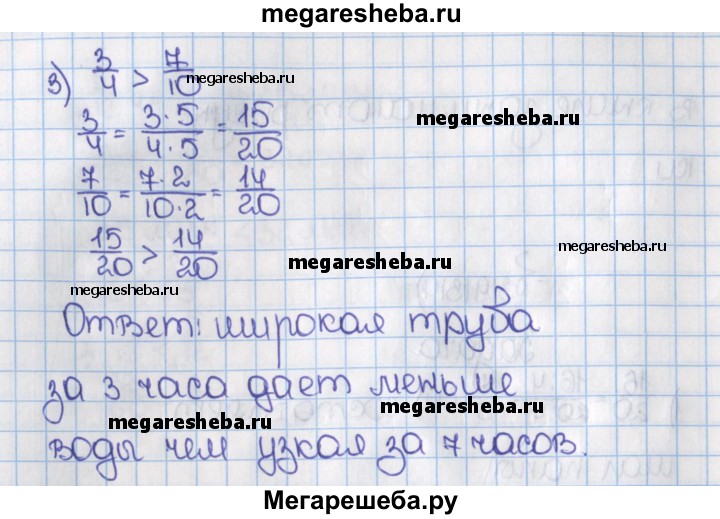 megaresheba.ru
3) 3/4 > 7/10 megaresheba.ru
3/4 = 3·5/4·5 = 15/20 megaresheba.ru
7/10 = 7·2/10·2 = 14/20
15/20 > 14/20 megaresheba.ru
megaresheba.ru
Ответ: широкая труба
за 3 часа дает меньше
megaresheba.ru megaresheba.ru
воды чем узкая за 7 часов.
Мегарешеба.ру